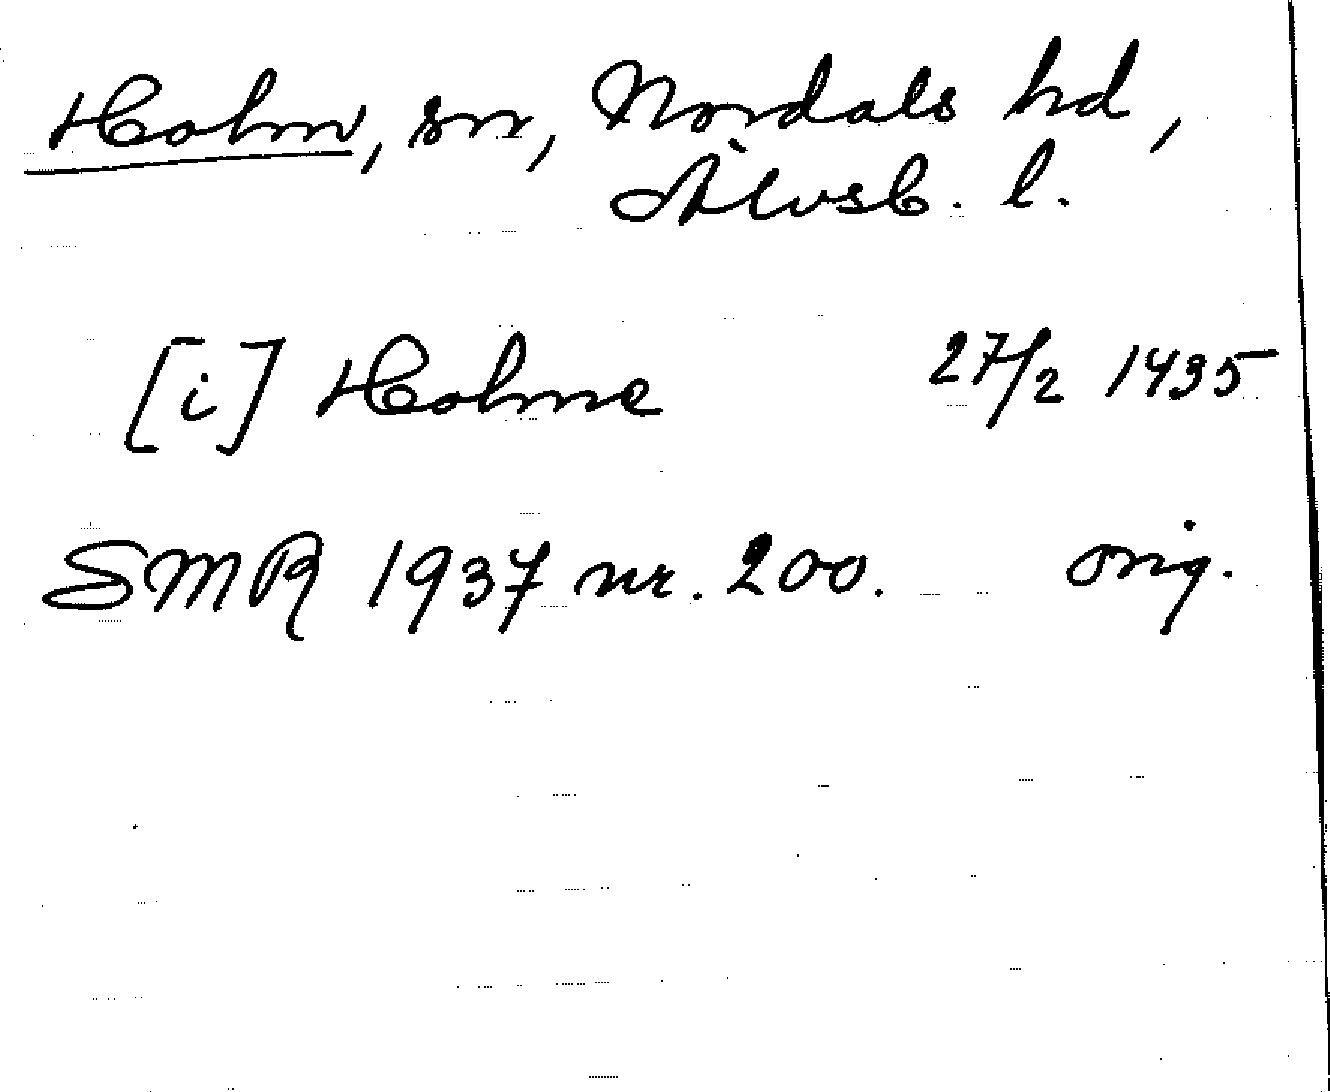 Holm, sn, Nordals hd,
Älvsb. l.
[i] Holme 27/2 1435
SMR 1937 nr. 200. orig.